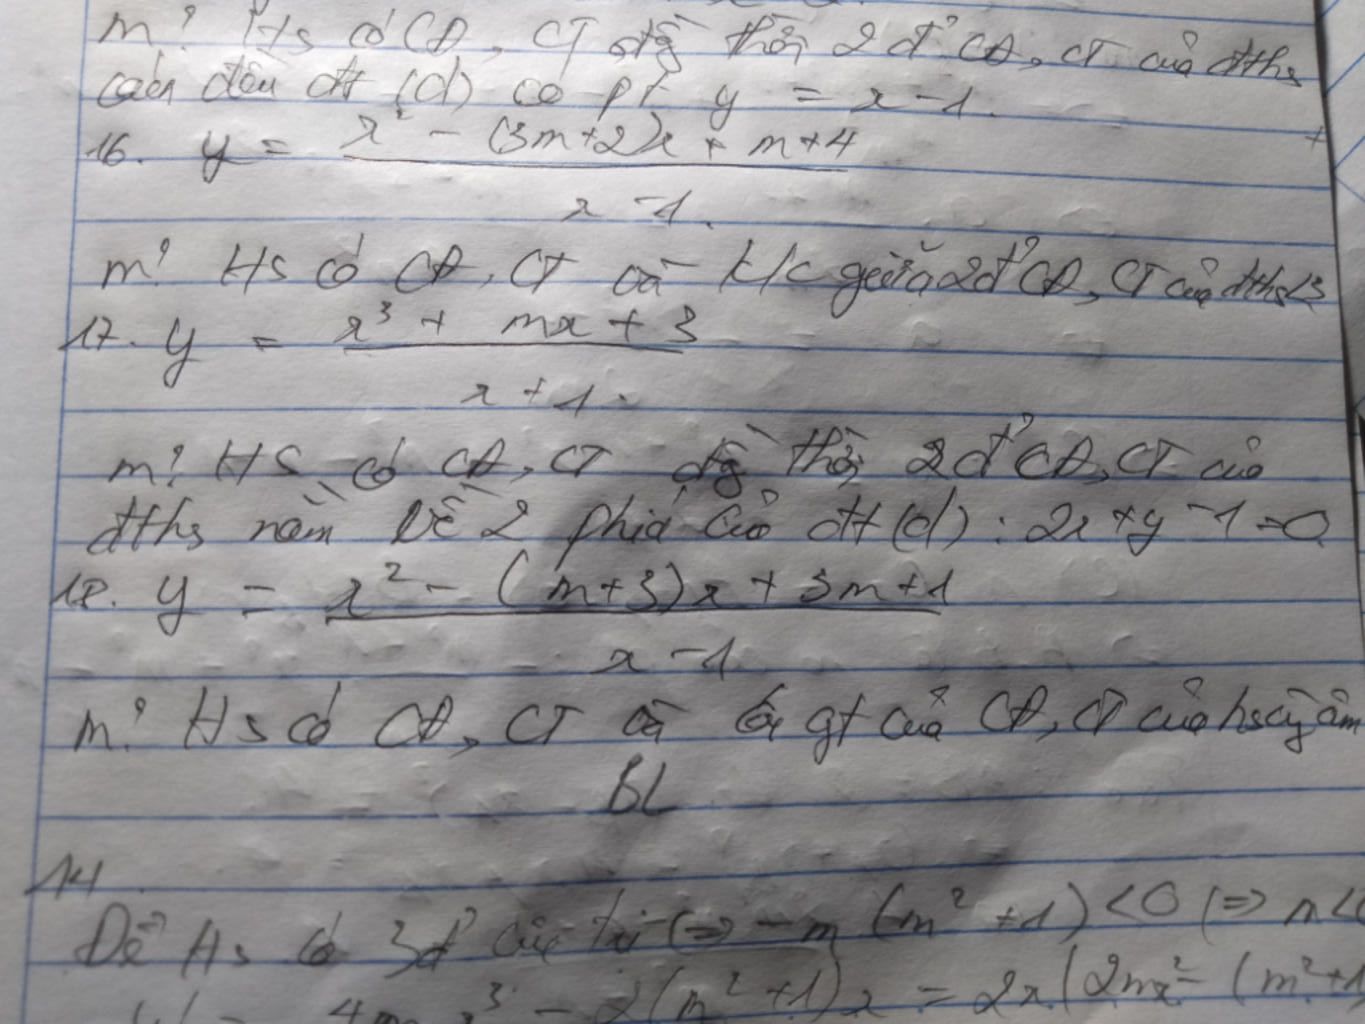 m? Hs có CĐ, CT đồng thời 2 đ' CĐ, CT của đths
cách đều đt (d) có pt y = x - 1.
16. y = \frac{x² - (3m+2)x + m+4}{x - 1}.
m? Hs có CĐ, CT và k/c giữa 2 đ' CĐ, CT của đths < 3
17. y = \frac{x³ + mx + 3}{x + 1}.
m? Hs có CĐ, CT đồng thời 2 đ' CĐ, CT của
đths nằm về 2 phía của đt (d): 2x + y - 1 = 0
18. y = \frac{x² - (m+3)x + 3m+1}{x - 1}
m? Hs có CĐ, CT và các gt của CĐ, CT của hs cùng âm
BL
14
Để Hs có 3 đ' cực trị (=> - m (m² + 1) < 0 (=>
3 - 2(m² + 1)x = 2x(2mx² - (m² + 1